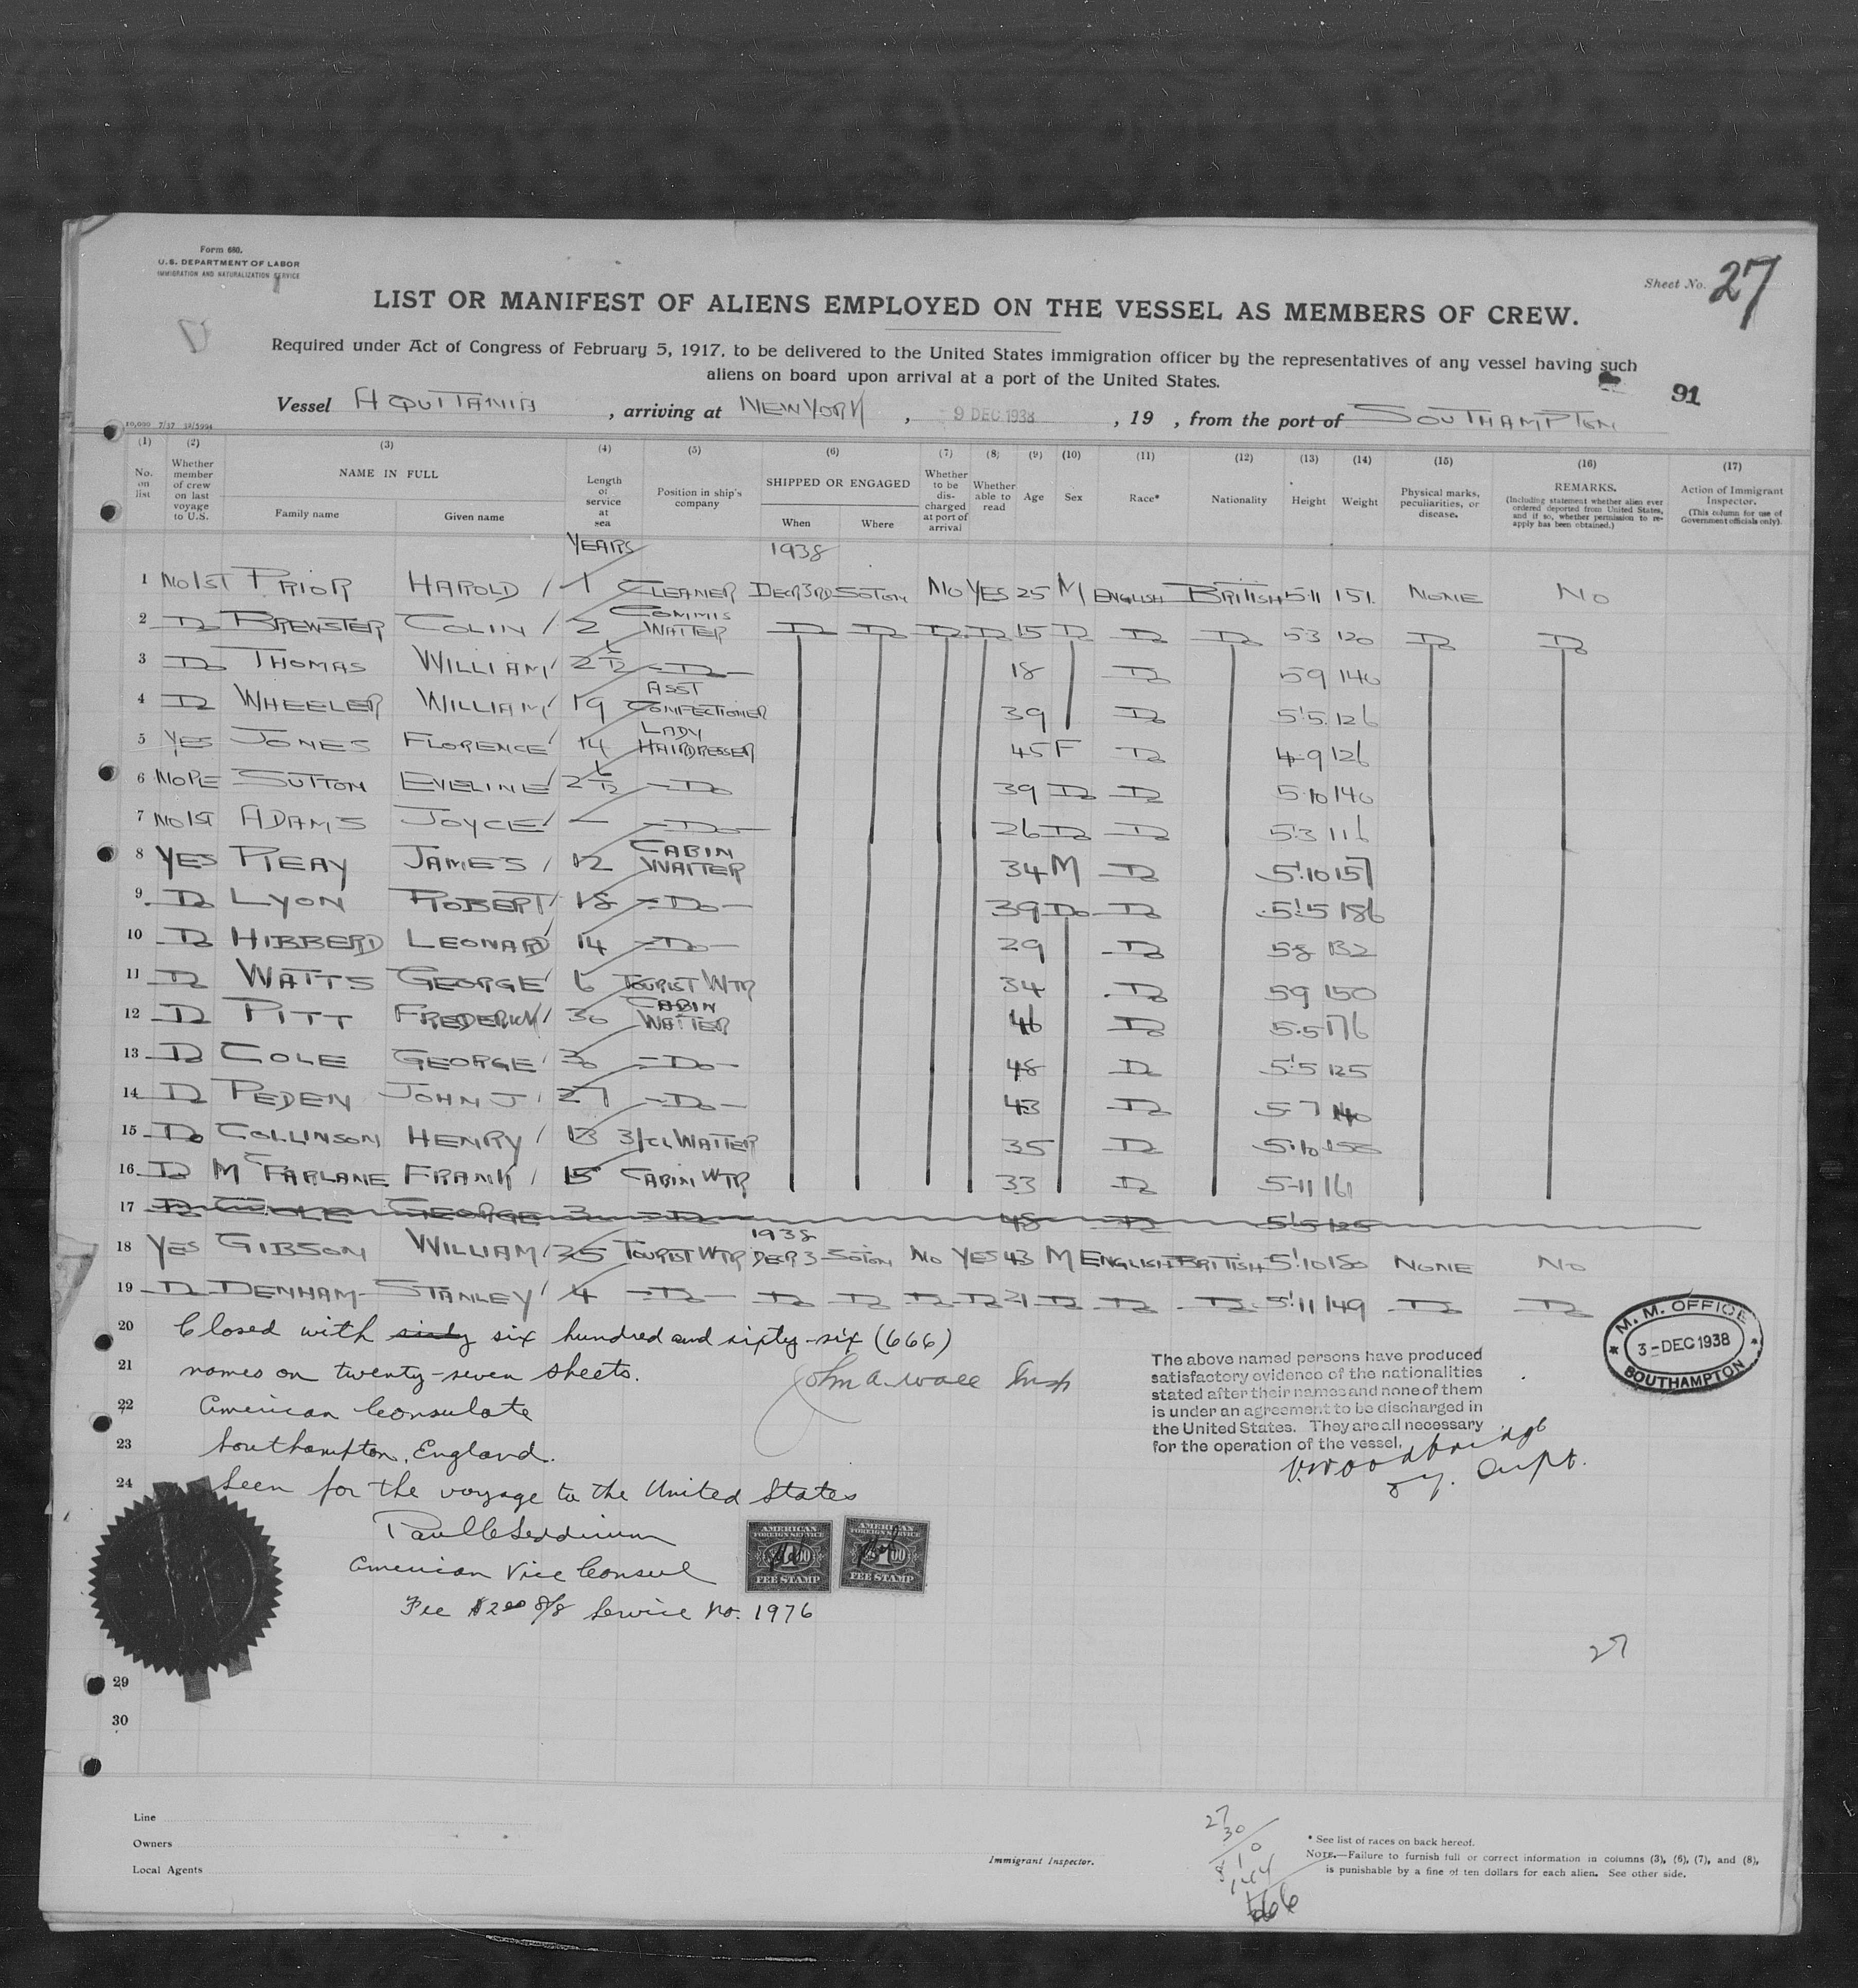 Form 680.
U.S. DEPARTMENT OF LABOR
IMMIGRATION AND NATURALIZATION SERVICE
Sheet No. 27
LIST OR MANIFEST OF ALIENS EMPLOYED ON THE VESSEL AS MEMBERS OF CREW.
Required under Act of Congress of February 5, 1917, to be delivered to the United States immigration officer by the representatives of any vessel having such
aliens on board upon arrival at a port of the United States.
91
Vessel AQUITANIA, arriving at NEW YORK, 9 DEC 1938, 19 , from the port of SOUTHAMPTON
(1) (2) (3) (4) (5) (6) (7) (8) (9) (10) (11) (12) (13) (14) (15) (16) (17)
No. on list
Whether member of crew on last voyage to U.S.
NAME IN FULL
Family name Given name
Length of service at sea
Position in ship's company
SHIPPED OR ENGAGED
When Where
Whether to be discharged at port of arrival
Whether able to read
Age
Sex
Race*
Nationality
Height
Weight
Physical marks, peculiarities, or disease.
REMARKS.
(Including statement whether alien ever ordered deported from United States, and if so, whether permission to reapply has been obtained.)
Action of Immigrant Inspector.
(This column for use of Government officials only).
YEARS 1938
1 NO 1ST PRIOR HAROLD 1 CLEANER DECR 3RD SOTON NO YES 25 M ENGLISH BRITISH 5.11 151. NONE NO
2 Do BREWSTER COLIN 2 COMMIS WAITER Do Do Do Do 15 Do Do Do 5.3 120 Do Do
3 Do THOMAS WILLIAM 2 6/12 Do 18 Do 5 9 140
4 Do WHEELER WILLIAM 19 ASST CONFECTIONER 39 Do 5'5 126
5 YES JONES FLORENCE 14 LADY HAIRDRESSER 45 F Do 4-9 126
6 NO PE SUTTON EVELINE 2 6/12 Do 39 Do Do 5.10 140
7 NO 1ST ADAMS JOYCE — Do 26 Do Do 5.3 116
8 YES REAY JAMES 12 CABIN WAITER 34 M Do 5'.10 157
9 Do LYON ROBERT 18 Do 39 Do Do 5'.5 186
10 Do HIBBERD LEONARD 14 Do 29 Do 5 8 132
11 Do WATTS GEORGE 6 TOURIST WTR 34 Do 5 9 150
12 Do PITT FREDERICK 30 CABIN WAITER 46 Do 5.5 176
13 Do COLE GEORGE 30 Do 48 Do 5'.5 125
14 Do PEDEN JOHN J 27 Do 43 Do 5-7 140
15 Do COLLINSON HENRY 13 3/CL WAITER 35 Do 5.10
16 Do McFARLANE FRANK 15 CABIN WTR 33 Do 5-11 161
17 Do COLE GEORGE 3 Do 48 Do 5'5 125
1938
18 YES GIBSON WILLIAM 25 TOURIST WTR DECR 3 SOTON NO YES 43 M ENGLISH BRITISH 5'.10 180 NONE NO
19 Do DENHAM STANLEY 4 Do Do Do Do Do 21 Do Do Do 5'.11 149 Do Do
20 Closed with sixty six hundred and sixty-six (666)
21 names on twenty-seven sheets.
22 American Consulate
23 Southampton, England.
24 Seen for the voyage to the United States
American Vice Consul
Fee $2.00 8/8 Service No. 1976
AMERICAN FOREIGN SERVICE
FEE STAMP
AMERICAN FOREIGN SERVICE
FEE STAMP
The above named persons have produced
satisfactory evidence of the nationalities
stated after their names and none of them
is under an agreement to be discharged in
the United States. They are all necessary
for the operation of the vessel.
M. M. OFFICE
3-DEC 1938
SOUTHAMPTON
27
29
30
Line
Owners
Local Agents
Immigrant Inspector.
27
30
666
* See list of races on back hereof.
NOTE.—Failure to furnish full or correct information in columns (3), (6), (7), and (8),
is punishable by a fine of ten dollars for each alien. See other side.